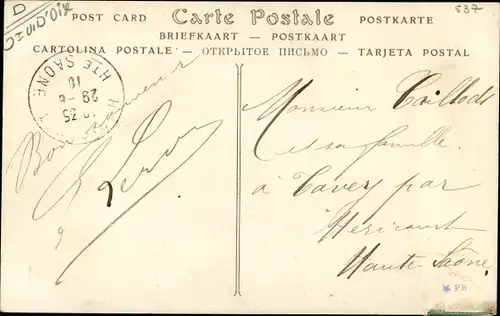 D
837
POST CARD Carte Postale POSTKARTE
BRIEFKAART – POSTKAART
CARTOLINA POSTALE – ОТКРЫТОЕ ПИСЬМО – TARJETA POSTAL
HTE SAONE
29 - 8
10
Bon souvenir
Monsieur
et sa famille
à Tavey par
Héricourt
Haute Saône
P.B